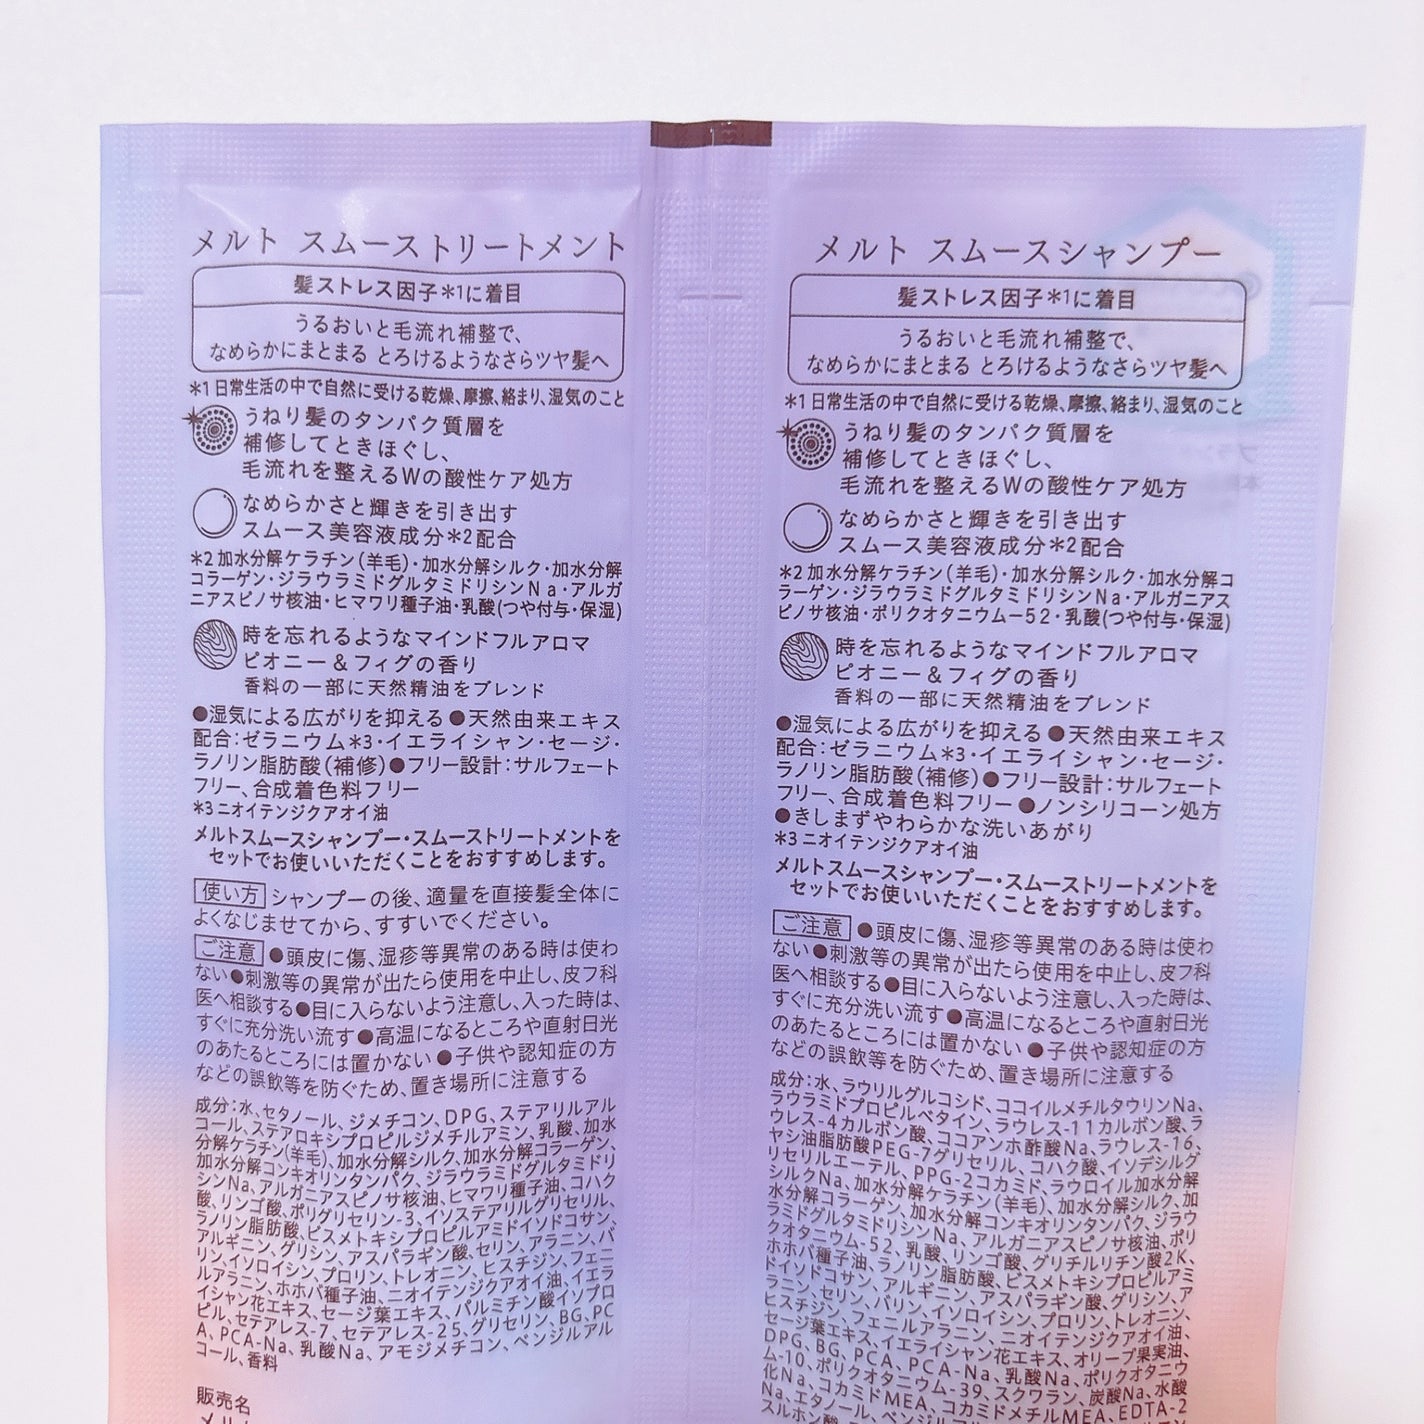 メルト スムーストリートメント
髪ストレス因子*1に着目
うるおいと毛流れ補整で、
なめらかにまとまる とろけるようなさらツヤ髪へ
*1 日常生活の中で自然に受ける乾燥、摩擦、絡まり、湿気のこと
うねり髪のタンパク質層を
補修してときほぐし、
毛流れを整えるWの酸性ケア処方
なめらかさと輝きを引き出す
スムース美容液成分*2配合
*2 加水分解ケラチン(羊毛)・加水分解シルク・加水分解
コラーゲン・ジラウラミドグルタミドリシンNa・アルガ
ニアスピノサ核油・ヒマワリ種子油・乳酸(つや付与・保湿)
時を忘れるようなマインドフルアロマ
ピオニー&フィグの香り
香料の一部に天然精油をブレンド
●湿気による広がりを抑える ●天然由来エキス
配合:ゼラニウム*3・イエライシャン・セージ・
ラノリン脂肪酸(補修) ●フリー設計:サルフェート
フリー、合成着色料フリー
*3 ニオイテンジクアオイ油
メルトスムースシャンプー・スムーストリートメントを
セットでお使いいただくことをおすすめします。
使い方 シャンプーの後、適量を直接髪全体に
よくなじませてから、すすいでください。
ご注意 ●頭皮に傷、湿疹等異常のある時は使わ
ない●刺激等の異常が出たら使用を中止し、皮フ科
医へ相談する●目に入らないよう注意し、入った時は、
すぐに充分洗い流す ●高温になるところや直射日光
のあたるところには置かない ●子供や認知症の方
などの誤飲等を防ぐため、置き場所に注意する
成分:水、セタノール、ジメチコン、DPG、ステアリルアル
コール、ステアロキシプロピルジメチルアミン、乳酸、加水
分解ケラチン(羊毛)、加水分解シルク、加水分解コラーゲン、
加水分解コンキオリンタンパク、ジラウラミドグルタミドリ
シンNa、アルガニアスピノサ核油、ヒマワリ種子油、コハク
酸、リンゴ酸、ポリグリセリン-3、イソステアリルグリセリル、
ラノリン脂肪酸、ビスメトキシプロピルアミドイソドコサン、
アルギニン、グリシン、アスパラギン酸、セリン、アラニン、バ
リン、イソロイシン、プロリン、トレオニン、ヒスチジン、フェニ
ルアラニン、ホホバ種子油、ニオイテンジクアオイ油、イエラ
イシャン花エキス、セージ葉エキス、パルミチン酸イソプロ
ピル、セテアレス-7、セテアレス-25、グリセリン、BG、PC
A、PCA-Na、乳酸Na、アモジメチコン、ベンジルアル
コール、香料
販売名
メルト スムースシャンプー
髪ストレス因子*1に着目
うるおいと毛流れ補整で、
なめらかにまとまる とろけるようなさらツヤ髪へ
*1 日常生活の中で自然に受ける乾燥、摩擦、絡まり、湿気のこと
うねり髪のタンパク質層を
補修してときほぐし、
毛流れを整えるWの酸性ケア処方
なめらかさと輝きを引き出す
スムース美容液成分*2配合
*2 加水分解ケラチン(羊毛)・加水分解シルク・加水分解コ
ラーゲン・ジラウラミドグルタミドリシンNa・アルガニアス
ピノサ核油・ポリクオタニウム-52・乳酸(つや付与・保湿)
時を忘れるようなマインドフルアロマ
ピオニー&フィグの香り
香料の一部に天然精油をブレンド
●湿気による広がりを抑える ●天然由来エキス
配合:ゼラニウム*3・イエライシャン・セージ・
ラノリン脂肪酸(補修) ●フリー設計:サルフェート
フリー、合成着色料フリー ●ノンシリコーン処方
●きしまずやわらかな洗いあがり
*3 ニオイテンジクアオイ油
メルトスムースシャンプー・スムーストリートメントを
セットでお使いいただくことをおすすめします。
ご注意 ●頭皮に傷、湿疹等異常のある時は使わ
ない●刺激等の異常が出たら使用を中止し、皮フ科
医へ相談する●目に入らないよう注意し、入った時は、
すぐに充分洗い流す ●高温になるところや直射日光
のあたるところには置かない ●子供や認知症の方
などの誤飲等を防ぐため、置き場所に注意する
成分:水、ラウリルグルコシド、ココイルメチルタウリンNa、
ラウラミドプロピルベタイン、ラウレス-11カルボン酸、ラ
ウレス-4カルボン酸、ココアンホ酢酸Na、ラウレス-16、
ヤシ油脂肪酸PEG-7グリセリル、コハク酸、イソデシルグ
リセリルエーテル、PPG-2コカミド、ラウロイル加水分解
シルクNa、加水分解ケラチン(羊毛)、加水分解シルク、加
水分解コラーゲン、加水分解コンキオリンタンパク、ジラウ
ラミドグルタミドリシンNa、アルガニアスピノサ核油、ポリ
クオタニウム-52、乳酸、リンゴ酸、グリチルリチン酸2K、
ホホバ種子油、ラノリン脂肪酸、ビスメトキシプロピルアミ
ドイソドコサン、アルギニン、アスパラギン酸、グリシン、ア
ラニン、セリン、バリン、イソロイシン、プロリン、トレオニン、
ヒスチジン、フェニルアラニン、ニオイテンジクアオイ油、
セージ葉エキス、イエライシャン花エキス、オリーブ果実油、
DPG、BG、PCA、PCA-Na、乳酸Na、ポリクオタニウ
ム-10、ポリクオタニウム-39、スクワラン、炭酸Na、水酸
化Na、コカミドMEA、コカミドメチルMEA、EDTA-2
Na、エタノール、